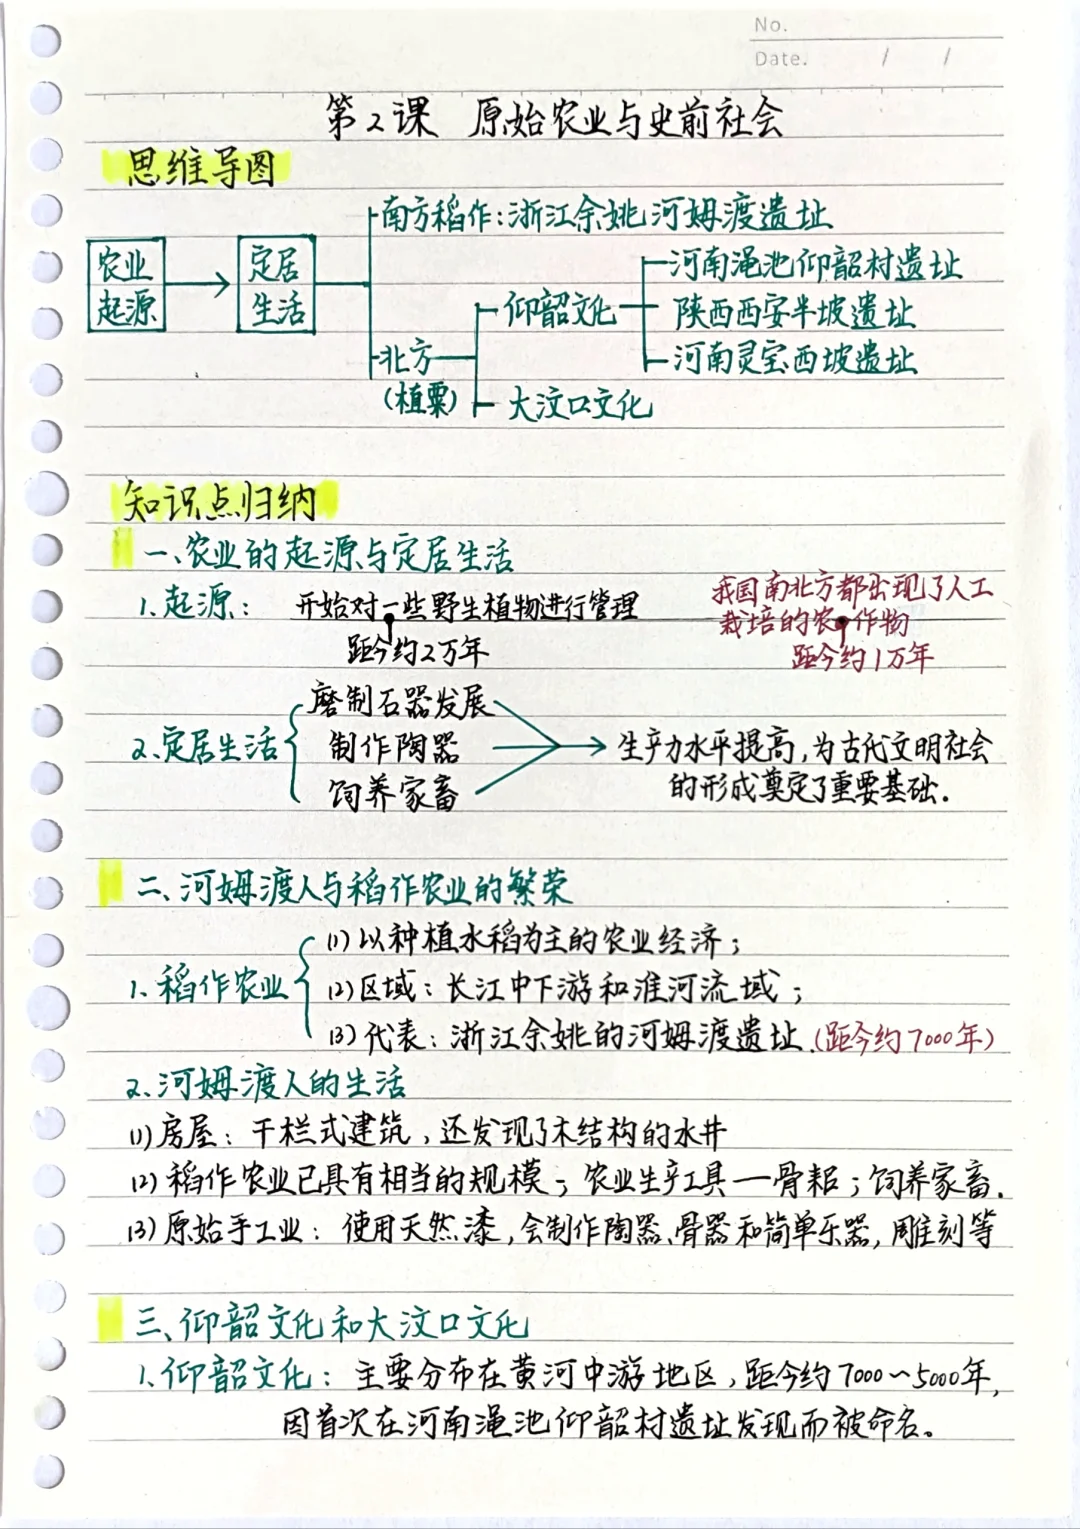 No.
Date. / /
第2课 原始农业与史前社会
思维导图
农业起源
定居生活
南方稻作:浙江余姚河姆渡遗址
北方(植粟)
仰韶文化
河南渑池仰韶村遗址
陕西西安半坡遗址
河南灵宝西坡遗址
大汶口文化
知识点归纳
一、农业的起源与定居生活
1.起源: 开始对一些野生植物进行管理
距今约2万年
我国南北方都出现了人工
栽培的农作物
距今约1万年
2.定居生活
磨制石器发展
制作陶器
饲养家畜
生产力水平提高,为古代文明社会
的形成奠定了重要基础.
二、河姆渡人与稻作农业的繁荣
1.稻作农业
(1)以种植水稻为主的农业经济;
(2)区域:长江中下游和淮河流域;
(3)代表:浙江余姚的河姆渡遗址.(距今约7000年)
2.河姆渡人的生活
(1)房屋:干栏式建筑,还发现了木结构的水井
(2)稻作农业已具有相当的规模;农业生产工具—骨耜;饲养家畜.
(3)原始手工业:使用天然漆,会制作陶器、骨器和简单乐器,雕刻等
三、仰韶文化和大汶口文化
1.仰韶文化:主要分布在黄河中游地区,距今约7000~5000年,
因首次在河南渑池仰韶村遗址发现而被命名。